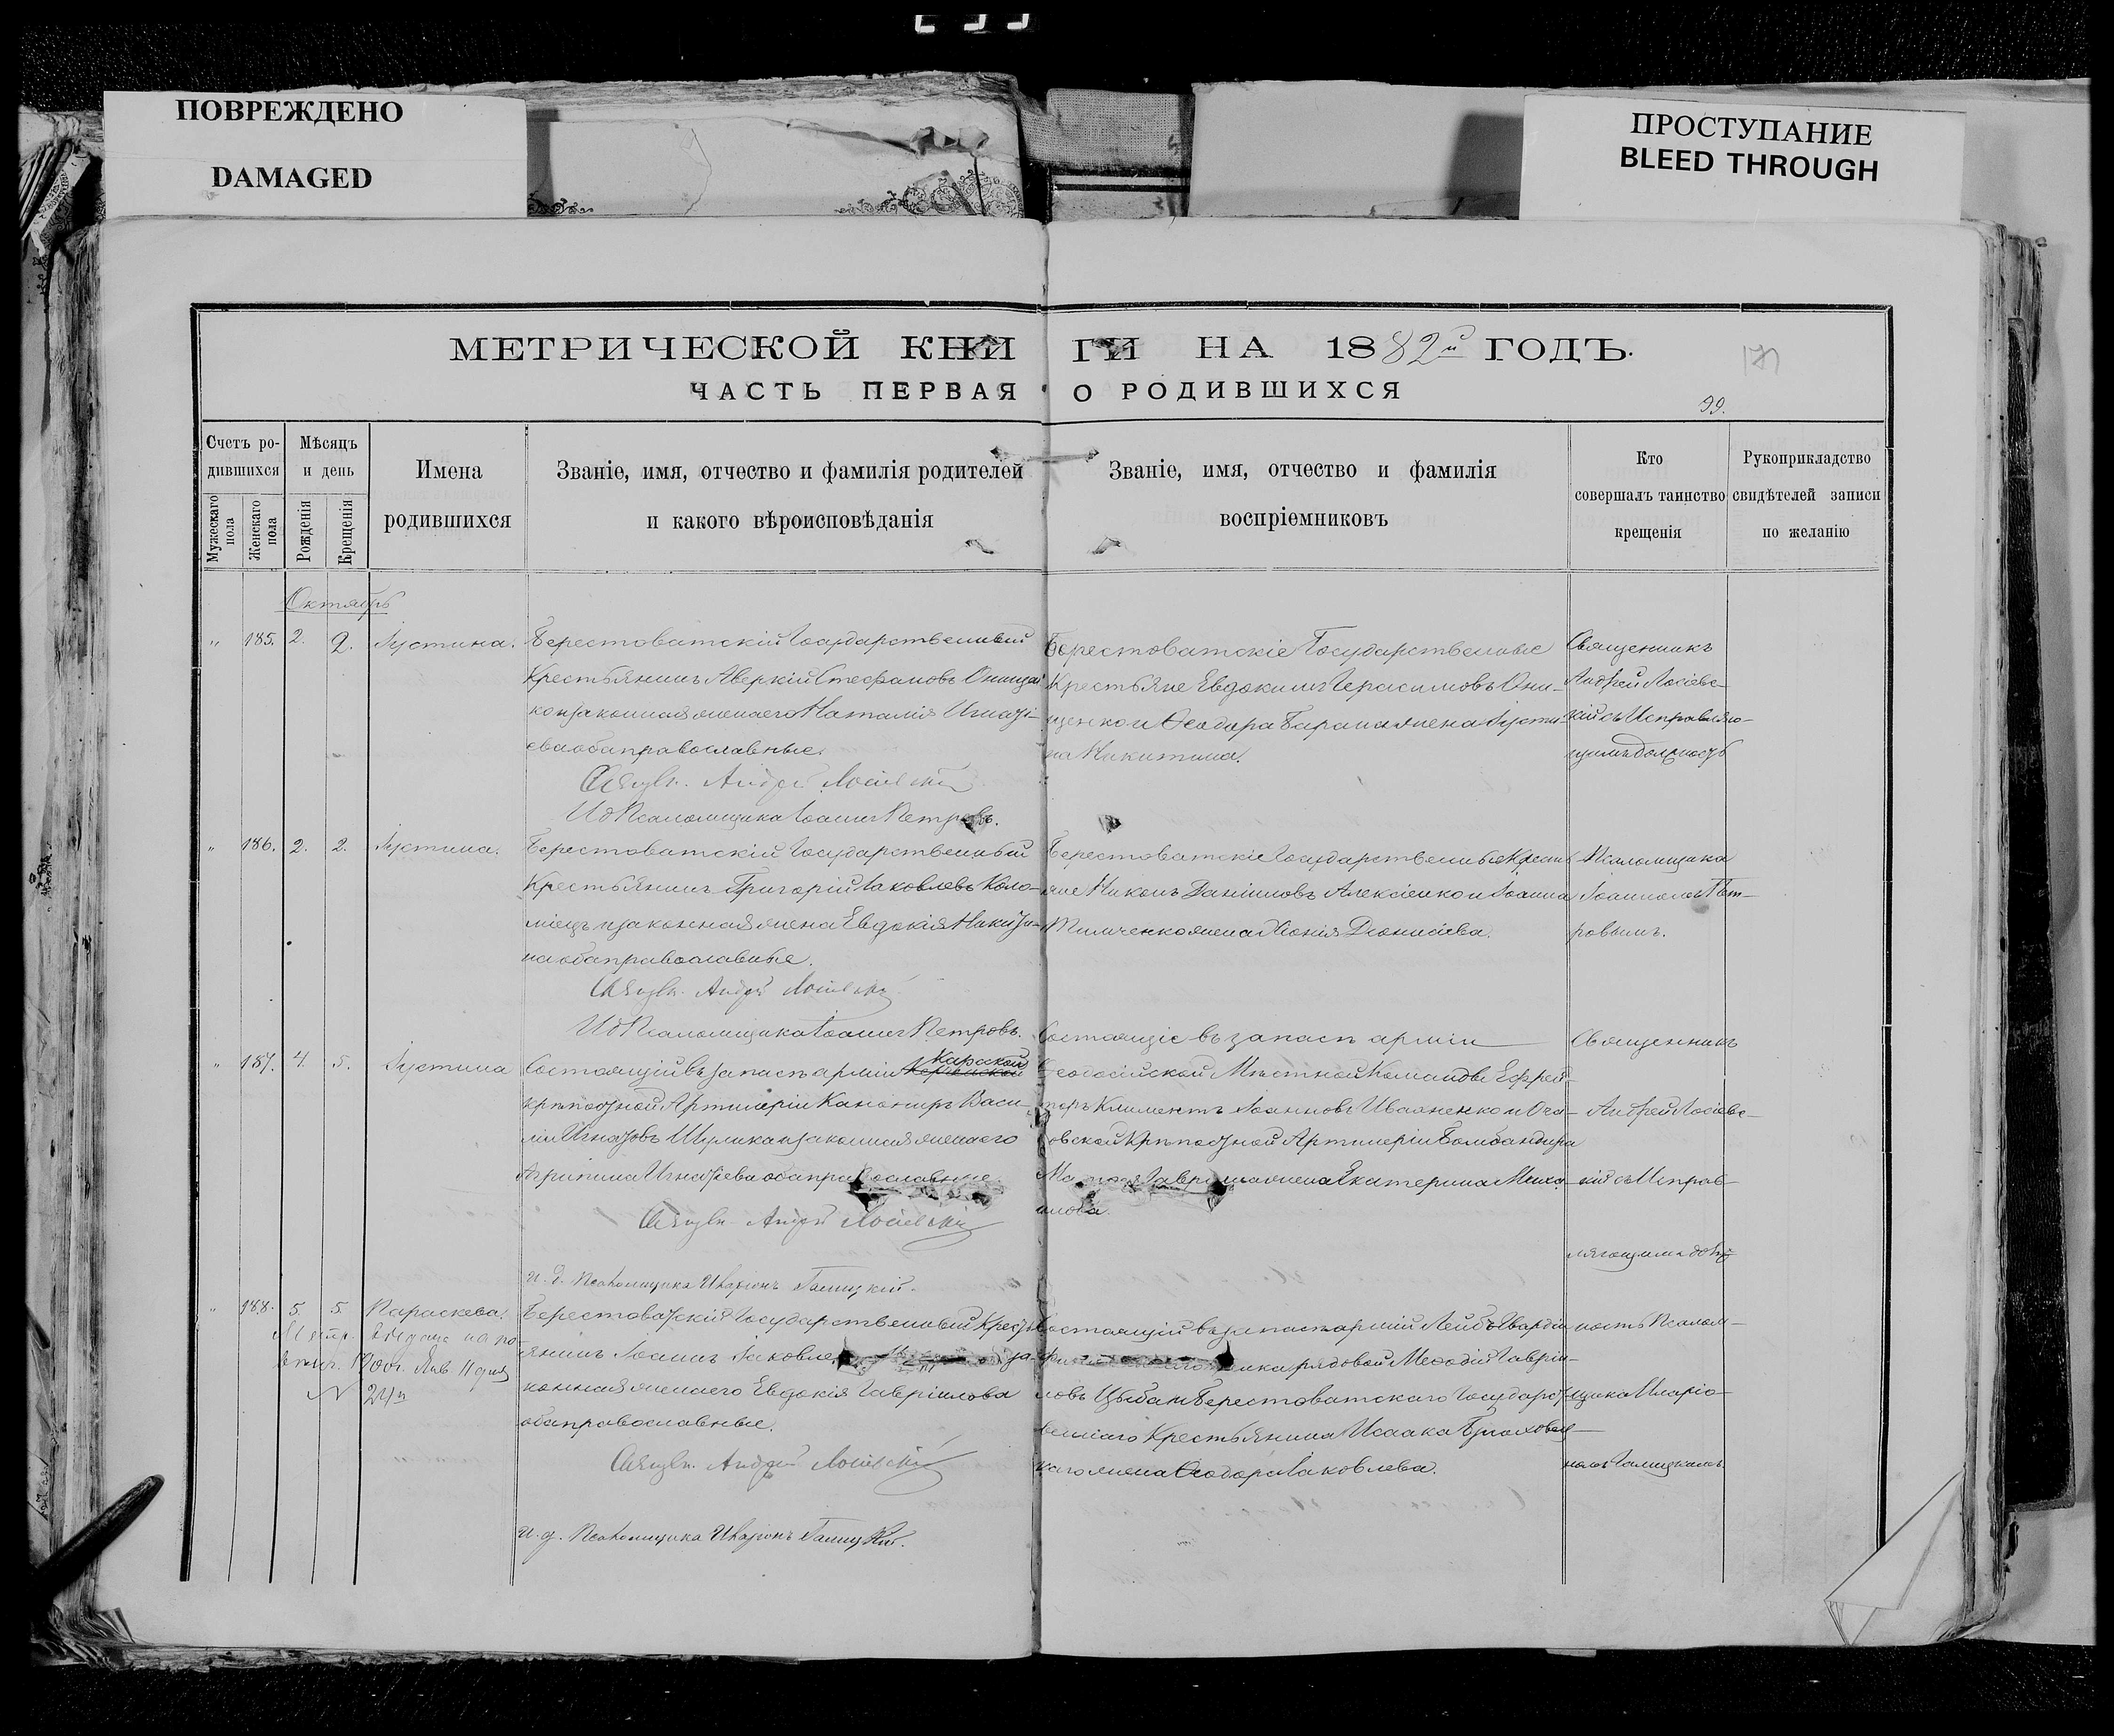 ПОВРЕЖДЕНО
DAMAGED
ПРОСТУПАНИЕ
BLEED THROUGH
МЕТРИЧЕСКОЙ КНИГИ НА 1882й ГОДЪ.
ЧАСТЬ ПЕРВАЯ О РОДИВШИХСЯ
99.
Счетъ ро-
дившихся
Мужескаго пола
Женскаго пола
Мѣсяцъ
и день
Рожденія
Крещенія
Имена
родившихся
Званіе, имя, отчество и фамилія родителей
и какого вѣроисповѣданія
Званіе, имя, отчество и фамилія
воспріемниковъ
Кто
совершалъ таинство
крещенія
Рукоприкладство
свидѣтелей записи
по желанію
Октябрь
" 185. 2. 2. Іустина.
Берестоватскій Государственный
Крестьянинъ Аверкій Стефановъ Онищен
ко и законная жена его Наталія Игнаті-
ева оба православные.
Священ. Андрей Лосіевскій
И д Псаломщика Іоаннъ Петровъ.
Берестоватскіе Государственные
Крестьяне Евдокимъ Герасимовъ Они-
щенко и Ѳеодора Барана жена Іусти
на Никитина.
Священникъ
Андрей Лосіевс-
кій съ Исправляю-
щимъ должность
" 186. 2. 2. Іустина.
Берестоватскій Государственный
Крестьянинъ Григорій Іаковлевъ Коло-
міецъ и законная жена Евдокія Никити-
на оба православные.
Священ. Андрей Лосіевскій
И д Псаломщика Іоаннъ Петровъ.
Берестоватскіе Государственные Кресть
яне Никонъ Даніиловъ Алексіенко и Іоанна
Тимченко жена Хіонія Діонисіева.
Псаломщика
Іоанномъ Пет-
ровымъ.
" 187. 4. 5. Іустина
Состоящій въ запасѣ арміи Карской
крѣпостной Артилеріи Канониръ Васи-
лій Игнатовъ Шулика и законная жена его
Агрипина Игнатіева оба православные.
Священ. Андрей Лосіевскій
и. д. Псаломщика Иларіонъ Галицкій.
Состоящіе въ запасѣ арміи
Ѳеодосійской Мѣстной Команды Ефрей-
торъ Климентъ Іоанновъ Иваненко и Оча-
ковской Крѣпостной Артилеріи Бомбандира
жена Екатерина Миха
илова.
Священникъ
Андрей Лосіевс-
кій съ Исправ-
ляющимъ долж
" 188. 5. 5. Параскева.
Метр. выдана на
1900г. Янв 11 дня
№ 24й
Берестоватскій Государственный Кресть
янинъ Іоаннъ Іаковле за-
конная жена его Евдокія Гавріилова
оба православные.
Священ. Андрей Лосіевскій
и. д. Псаломщика Иларіонъ Галицкій.
Состоящій въ запасѣ арміи Лейбъ Гвардіи
рядовой Меѳодій Гавріи-
ловъ Цыба и Берестоватскаго Государст
веннаго Крестьянина Исаака Бруховец
каго жена Ѳеодора Іаковлева.
ность Псалом-
щика Иларіо-
номъ Галицкимъ.